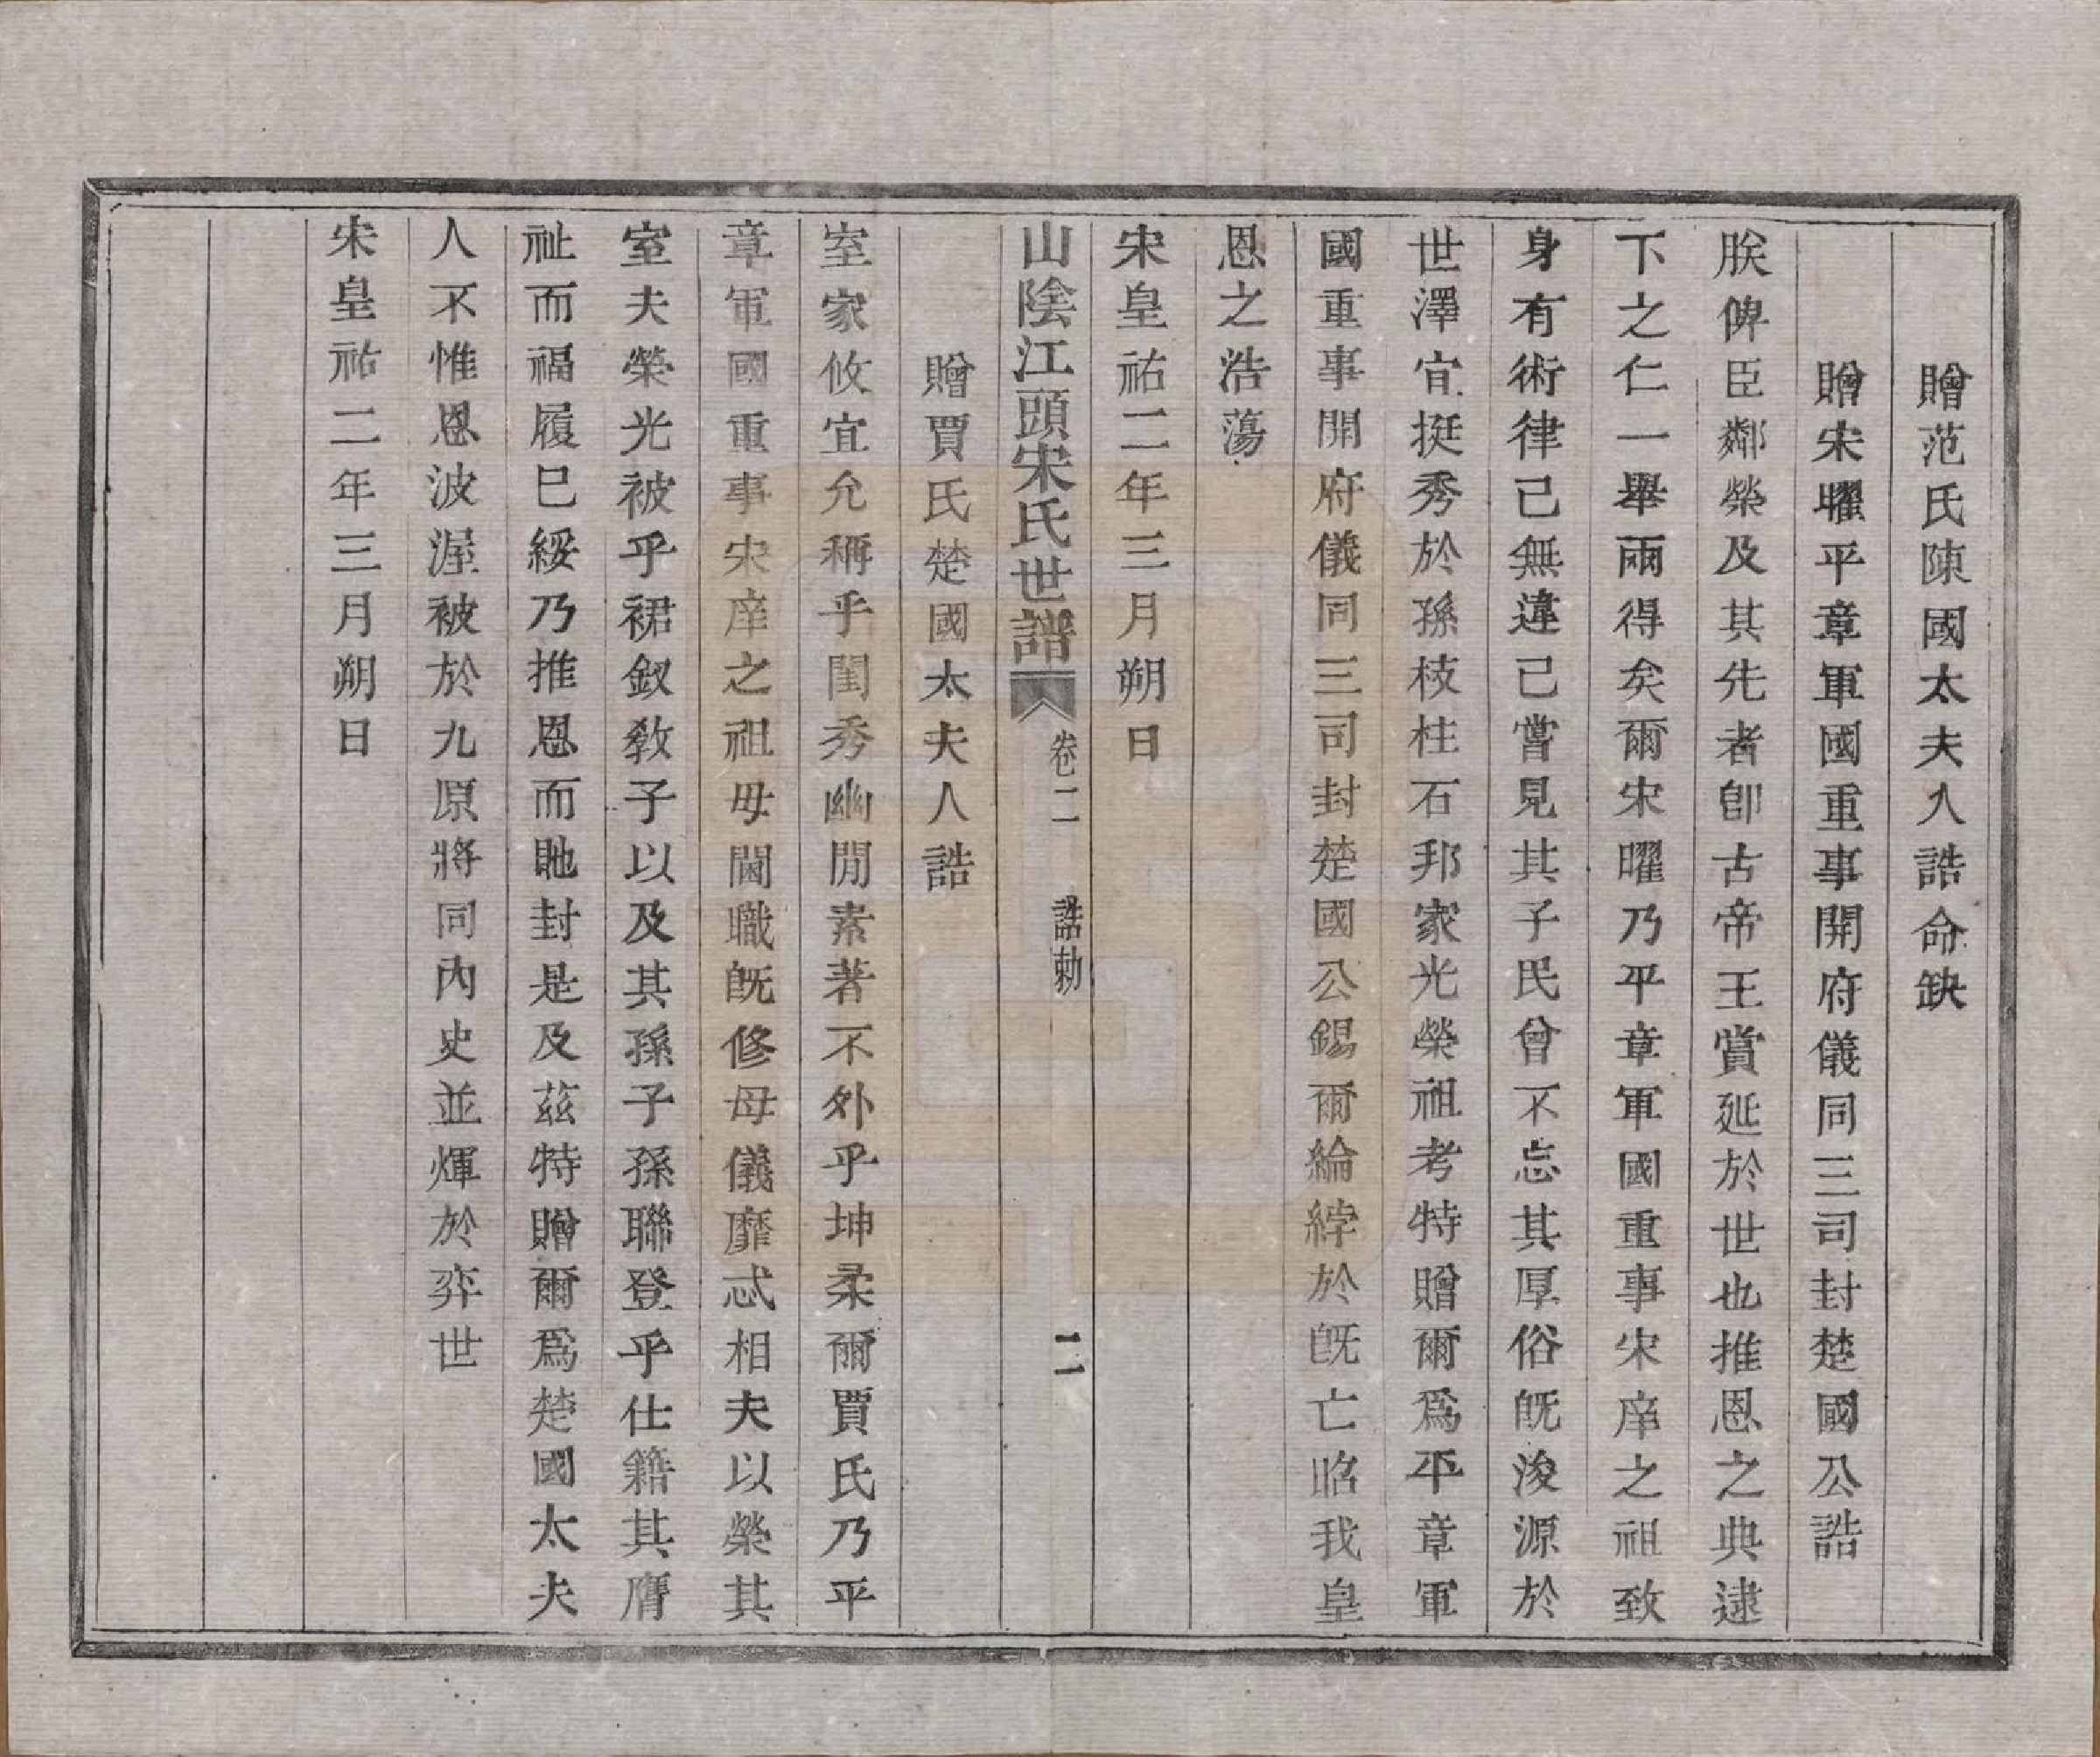 贈范氏陳國太夫人誥命缺
贈宋曜平章軍國重事開府儀同三司封楚國公誥
朕俾臣鄰榮及其先者卽古帝王賞延於世也推恩之典逮
下之仁一舉兩得矣爾宋曜乃平章軍國重事宋庠之祖致
身有術律己無違已嘗見其子民曾不忘其厚俗旣浚源於
世澤宜挺秀於孫枝柱石邦家光榮祖考特贈爾爲平章軍
國重事開府儀同三司封楚國公錫爾綸綍於旣亡昭我皇
恩之浩蕩
宋皇祐二年三月朔日
山陰江頭宋氏世譜 卷二 誥勅 二
贈賈氏楚國太夫人誥
室家攸宜允稱乎閨秀幽閒素著不外乎坤柔爾賈氏乃平
章軍國重事宋庠之祖母閫職旣修母儀靡忒相夫以榮其
室夫榮光被乎裙釵敎子以及其孫子孫聯登乎仕籍其膺
祉而福履已綏乃推恩而貤封是及茲特贈爾爲楚國太夫
人不惟恩波渥被於九原將同內史並輝於弈世
宋皇祐二年三月朔日